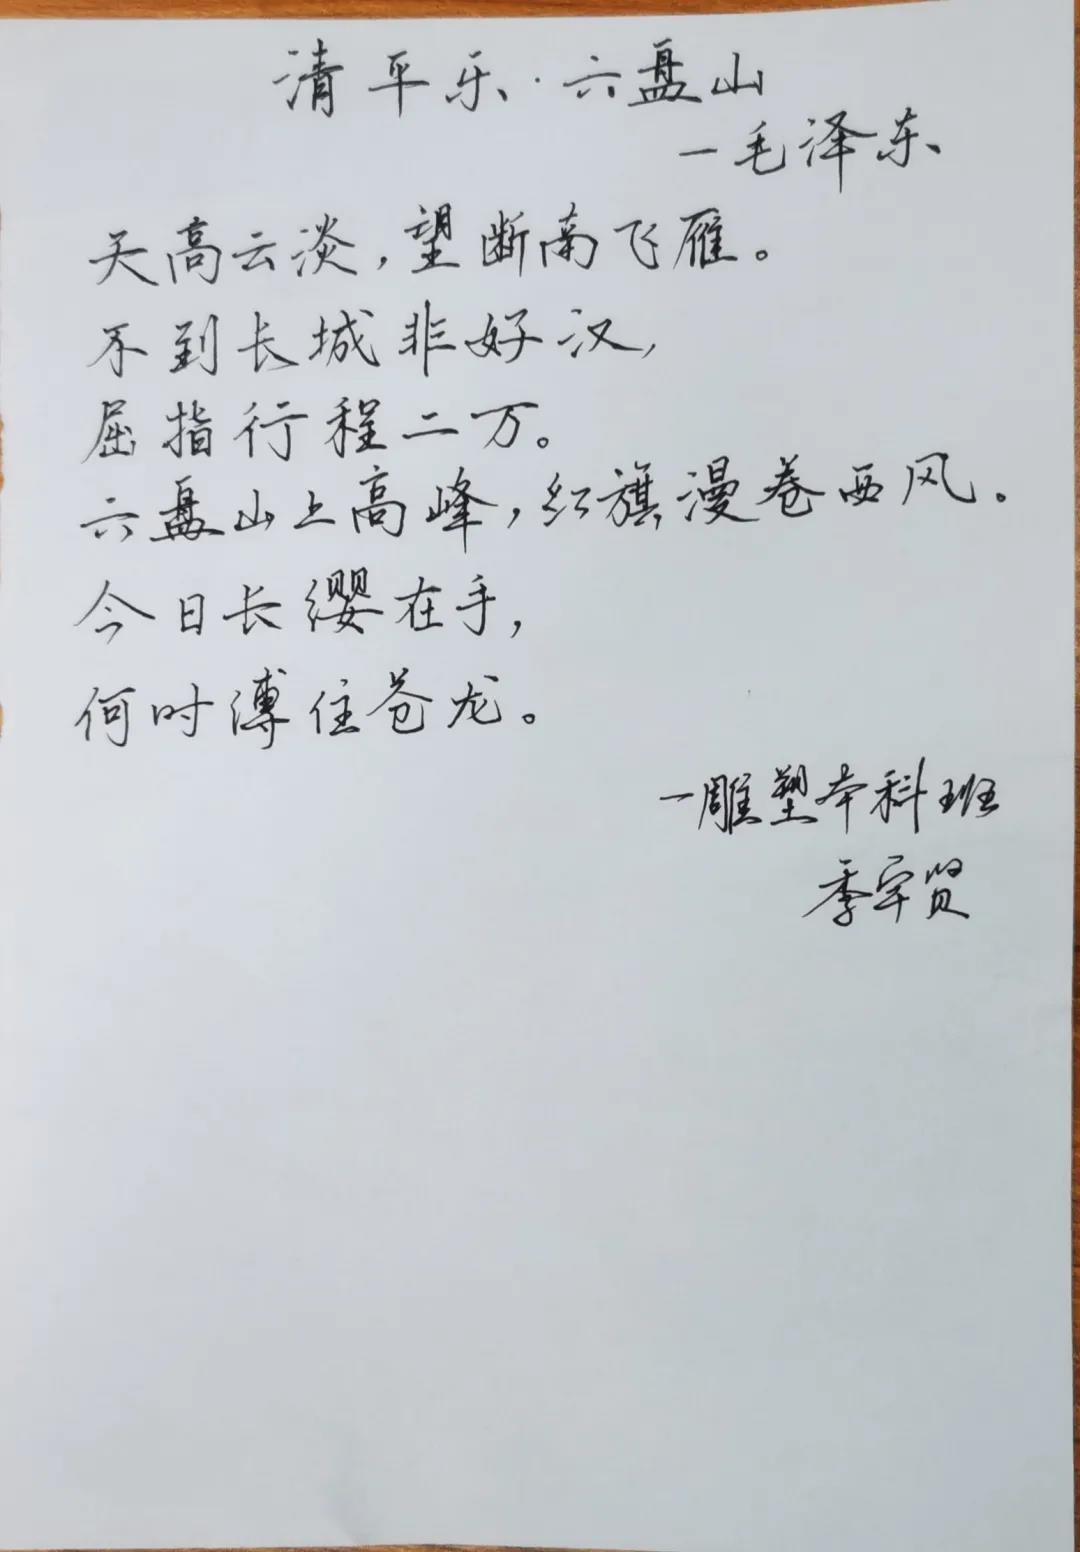 清平乐·六盘山
—毛泽东
天高云淡,望断南飞雁。
不到长城非好汉,
屈指行程二万。
六盘山上高峰,红旗漫卷西风。
今日长缨在手,
何时溥住苍龙。
—雕塑本科班
季宇贤